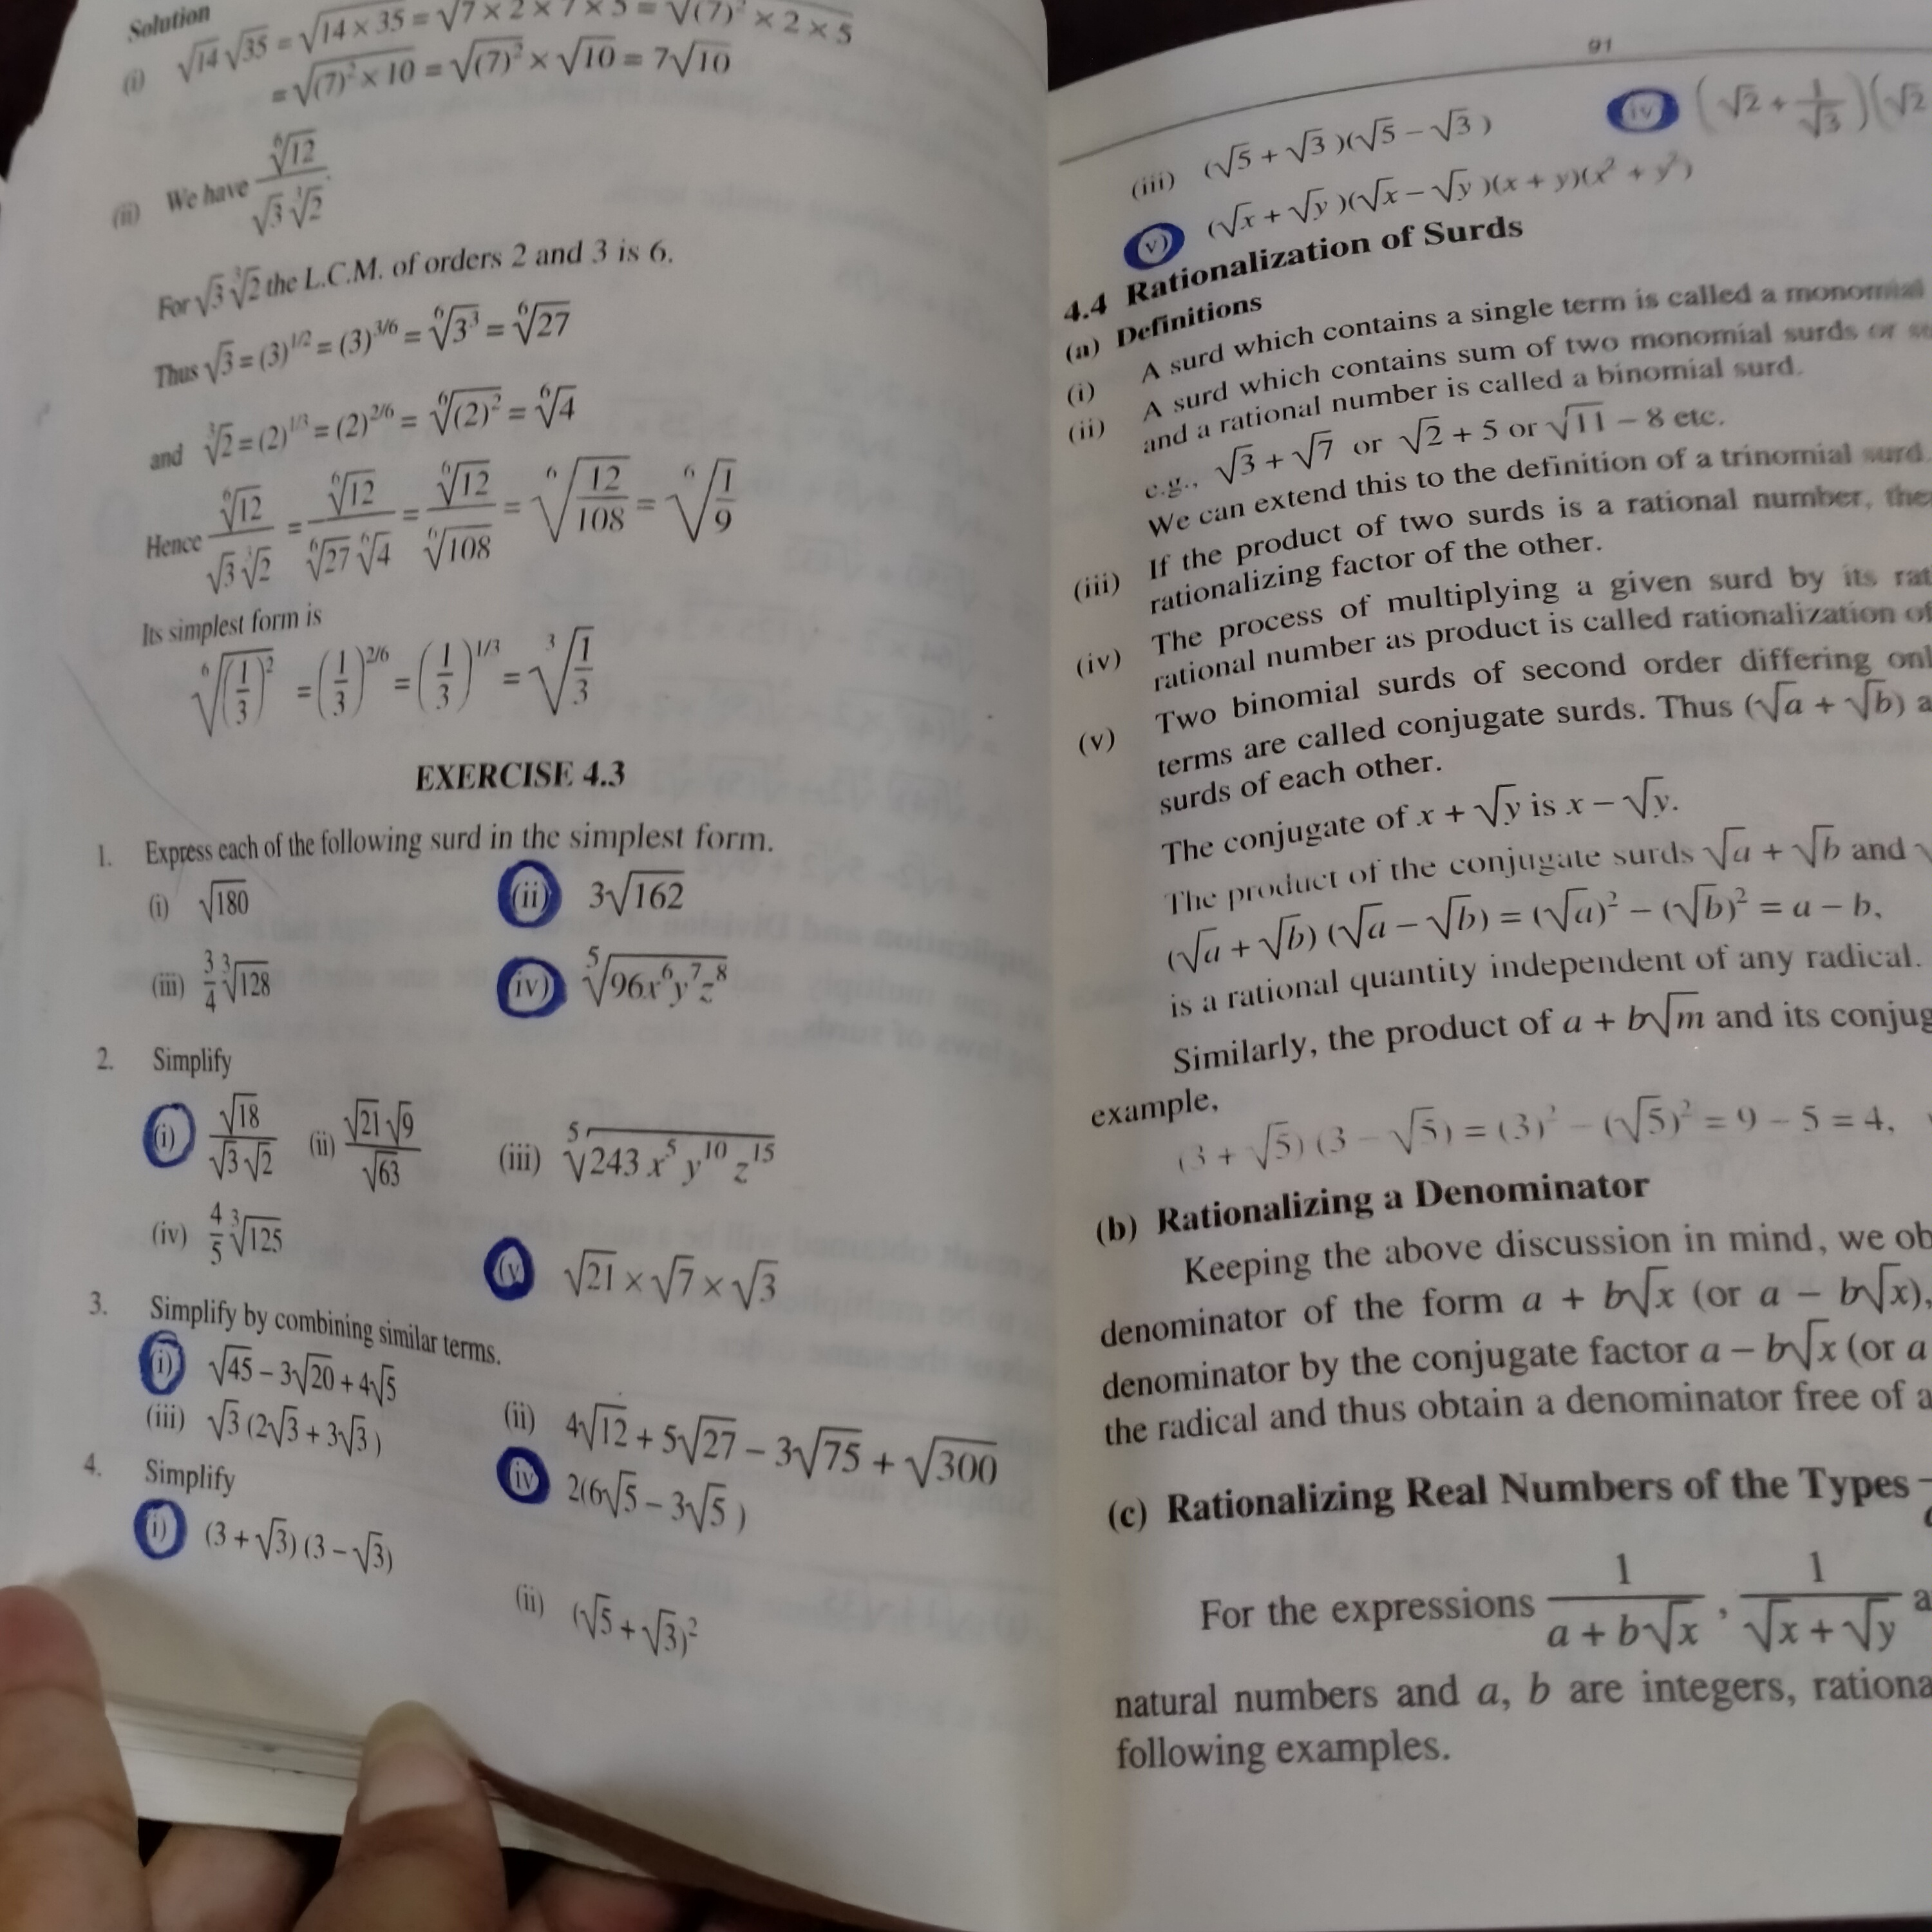 Solution
(i) √14 √35 = √(14 × 35) = √(7 × 2 × 7 × 5) = √((7)² × 2 × 5)
= √((7)² × 10) = √(7)² × √10 = 7√10
(ii) We have ⁶√12 / (√3 ³√2).
For √3 ³√2 the L.C.M. of orders 2 and 3 is 6.
Thus √3 = (3)^1/2 = (3)^3/6 = ⁶√3³ = ⁶√27
and ³√2 = (2)^1/3 = (2)^2/6 = ⁶√(2)² = ⁶√4
Hence ⁶√12 / (√3 ³√2) = ⁶√12 / (⁶√27 ⁶√4) = ⁶√12 / ⁶√108 = ⁶√(12/108) = ⁶√(1/9)
Its simplest form is
⁶√(1/3)² = (1/3)^2/6 = (1/3)^1/3 = ³√(1/3)
EXERCISE 4.3
1. Express each of the following surd in the simplest form.
(i) √180 (ii) 3√162
(iii) 3/4 ³√128 (iv) ⁵√(96x⁶y⁷z⁸)
2. Simplify
(i) √18 / (√3 √2) (ii) √21 √9 / √63 (iii) ⁵√(243 x⁵ y¹⁰ z¹⁵)
(iv) 4/5 ³√125 (v) √21 × √7 × √3
3. Simplify by combining similar terms.
(i) √45 – 3√20 + 4√5 (ii) 4√12 + 5√27 – 3√75 + √300
(iii) √3 (2√3 + 3√3) (iv) 2(6√5 – 3√5)
4. Simplify
(i) (3 + √3) (3 – √3) (ii) (√5 + √3)²
91
(iii) (√5 + √3)(√5 – √3) (iv) (√2 + 1/√3)(√2
(v) (√x + √y)(√x – √y)(x + y)(x² + y²)
4.4 Rationalization of Surds
(a) Definitions
(i) A surd which contains a single term is called a monomial
(ii) A surd which contains sum of two monomial surds or
and a rational number is called a binomial surd.
e.g., √3 + √7 or √2 + 5 or √11 – 8 etc.
We can extend this to the definition of a trinomial surd.
(iii) If the product of two surds is a rational number,
rationalizing factor of the other.
(iv) The process of multiplying a given surd by its rat
rational number as product is called rationalization of
(v) Two binomial surds of second order differing onl
terms are called conjugate surds. Thus (√a + √b) a
surds of each other.
The conjugate of x + √y is x – √y.
The product of the conjugate surds √a + √b and
(√a + √b) (√a – √b) = (√a)² – (√b)² = a – b,
is a rational quantity independent of any radical.
Similarly, the product of a + b√m and its conjug
example,
(3 + √5) (3 – √5) = (3)² – (√5)² = 9 – 5 = 4,
(b) Rationalizing a Denominator
Keeping the above discussion in mind, we ob
denominator of the form a + b√x (or a – b√x),
denominator by the conjugate factor a – b√x (or a
the radical and thus obtain a denominator free of a
(c) Rationalizing Real Numbers of the Types
For the expressions 1/(a + b√x), 1/(√x + √y) a
natural numbers and a, b are integers, rationa
following examples.